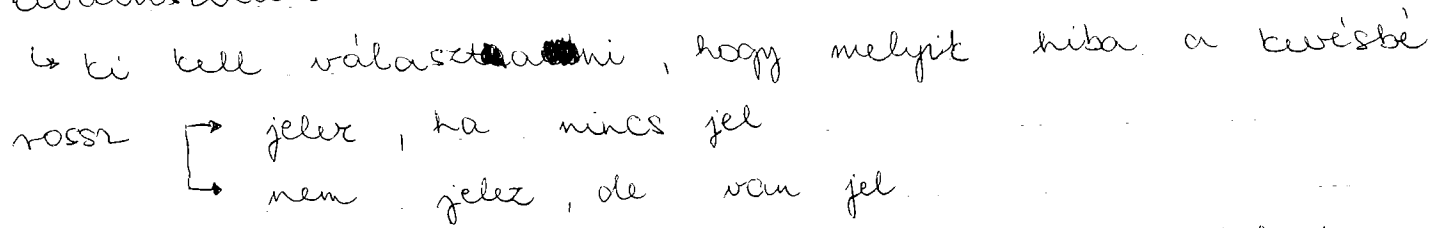 ↳ ki kell választani, hogy melyik hiba a kevésbé
rossz → jelez, ha nincs jel
→ nem jelez, de van jel